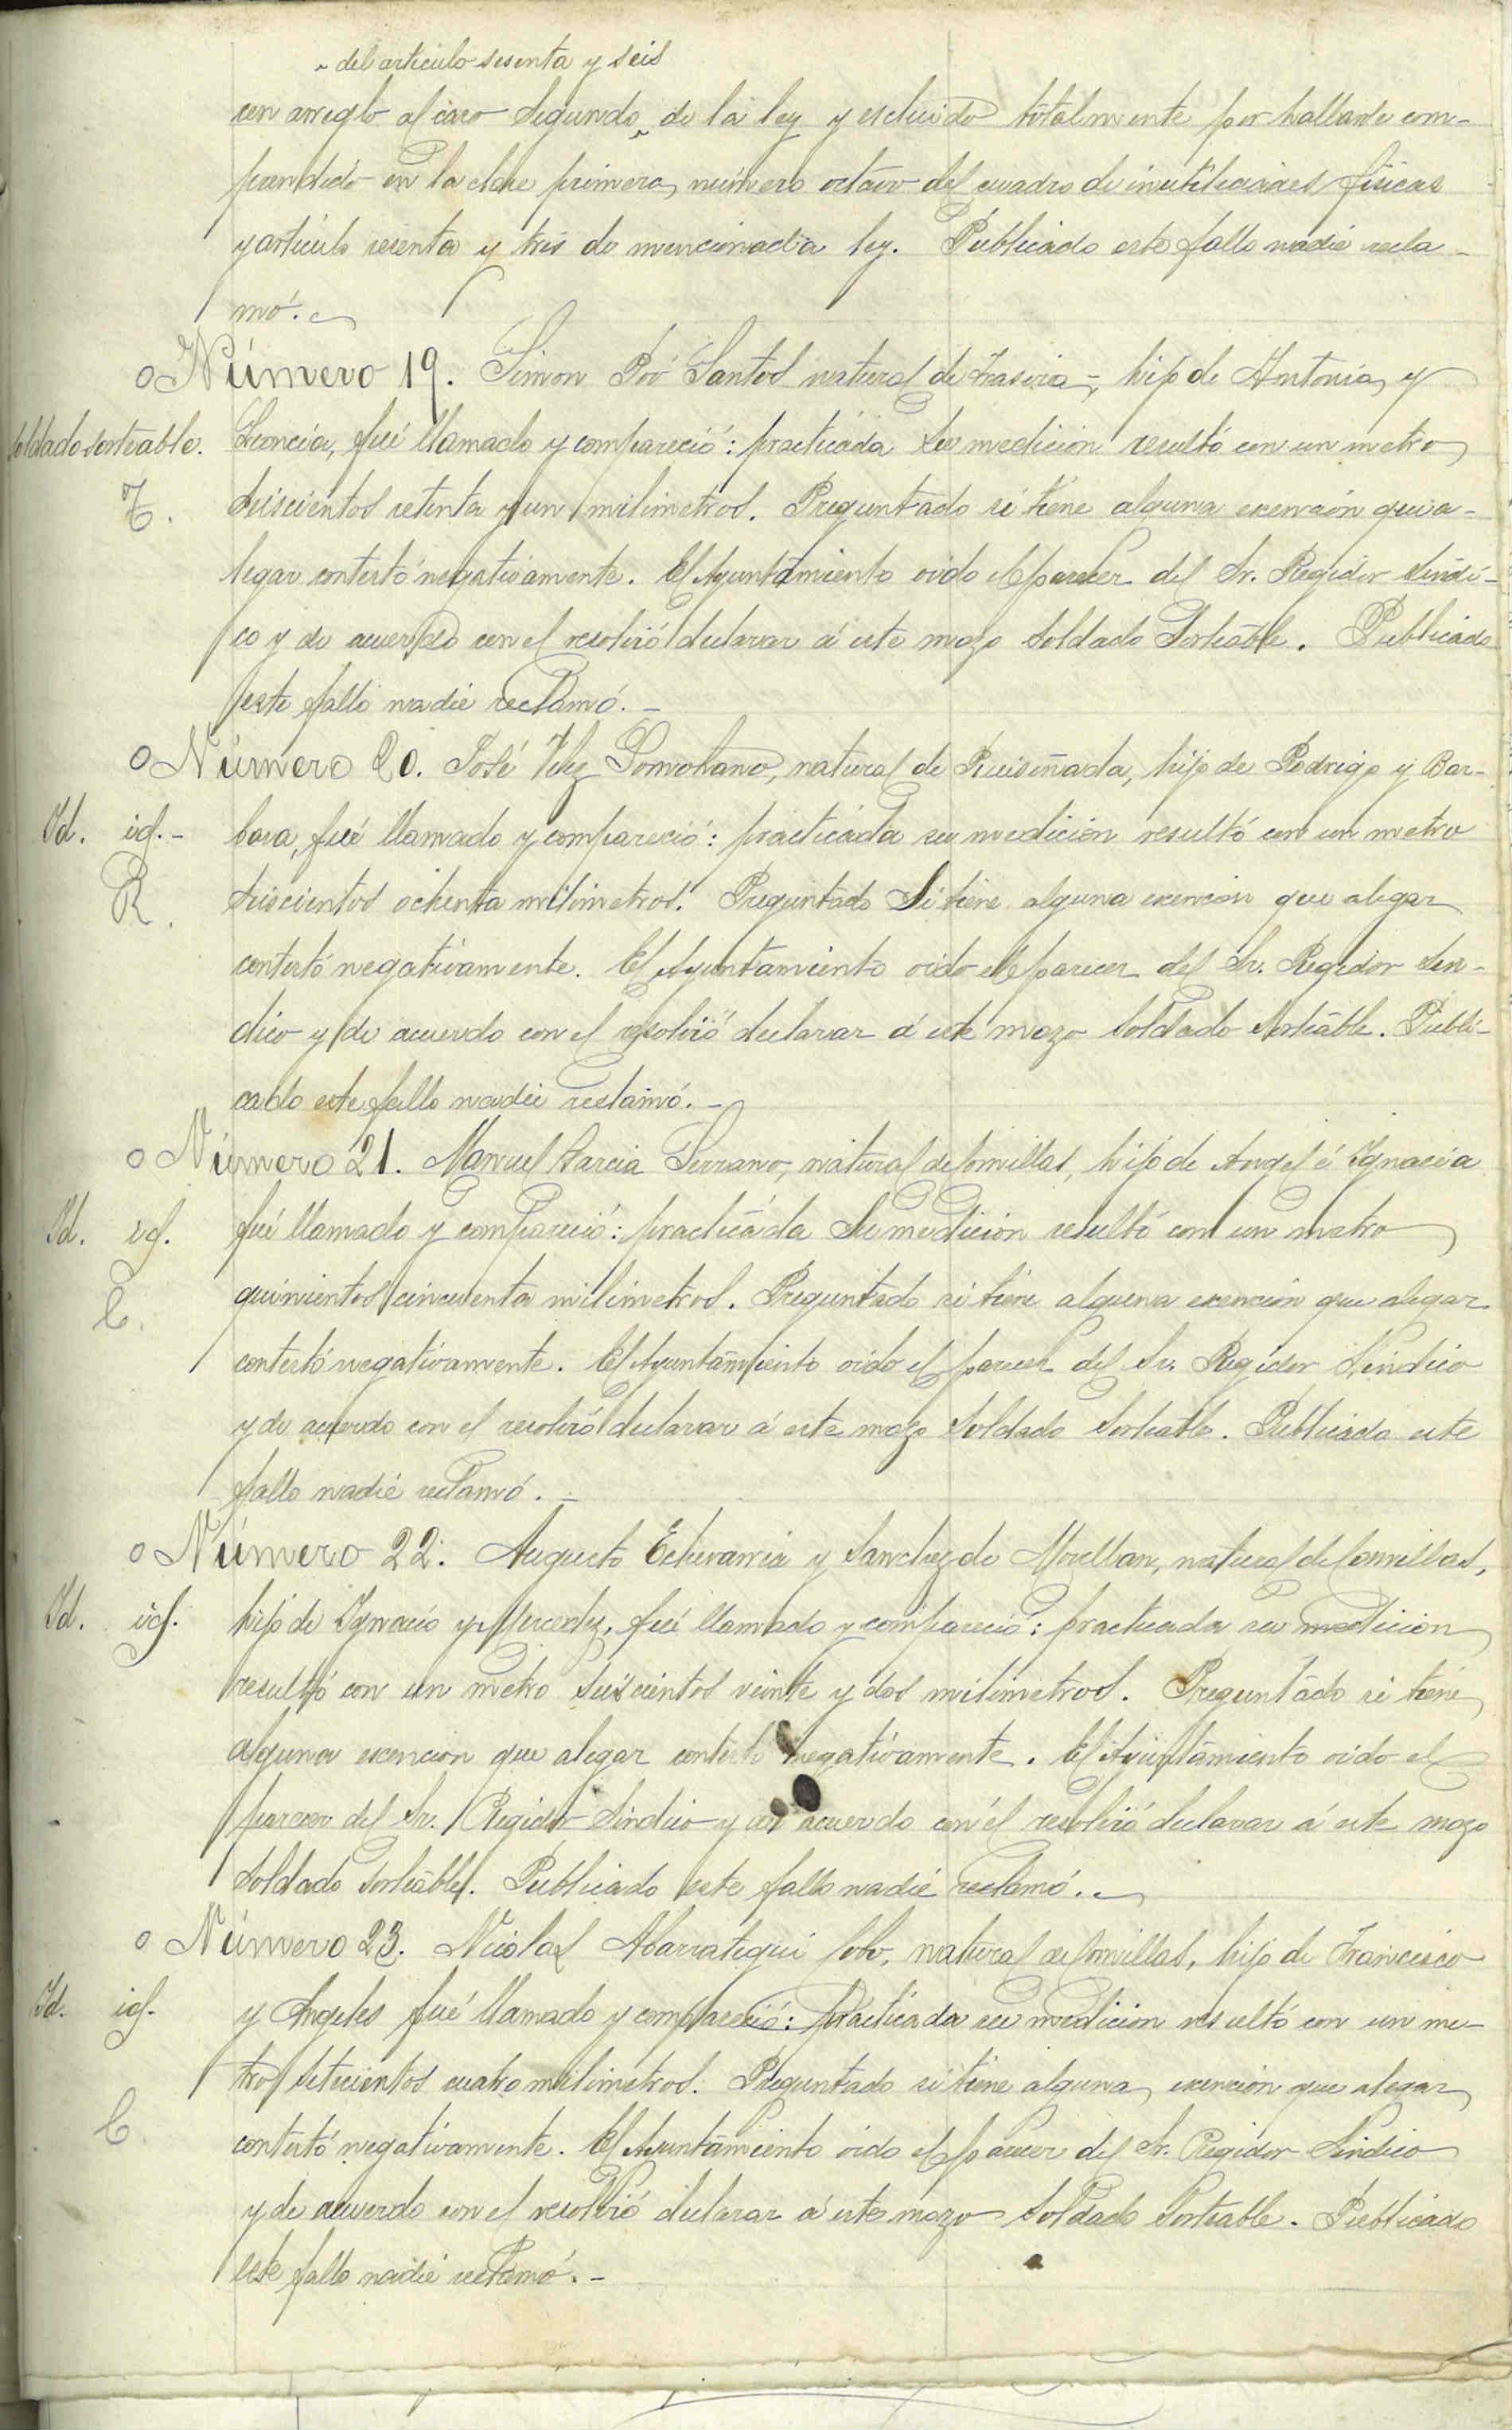 del articulo sesenta y seis
con arreglo al caso segundo de la ley y escluido totalmente por hallarse com-
prendido en la clase primera, número octavo del cuadro de inutilidades fisicas
y articulo sesenta y tres de mencionada ley. Publicado este fallo nadie recla-
mó.
Número 19. Simon Santos natural de, hijo de Antonia y
soldado sorteable. Leoncia, fué llamado y compareció: practicada su medicion resultó con un metro
T. seiscientos setenta y un milimetros. Preguntado si tiene alguna exención que a-
legar contestó negativamente. El Ayuntamiento oido el parecer del Sr. Regidor Sindi-
co y de acuerdo con el resolvió declarar á este mozo soldado Sorteable. Publicado
este fallo nadie reclamó. -
Número 20. José Velez Somohano, natural de Ruiseñada, hijo de Rodrigo y Bar-
Id. id. - bara, fué llamado y compareció: practicada su medicion resultó con un metro
R. seiscientos ochenta milimetros. Preguntado Si tiene alguna exencion que alegar
contestó negativamente. El Ayuntamiento oido el parecer del Sr. Regidor Sin-
dico y de acuerdo con el resolvió declarar á este mozo soldado sorteable. Publi-
cado este fallo nadie reclamó. -
Número 21. Manuel Garcia Serrano, natural de Comillas, hijo de Angel é Ygnacia
Id. id. fué llamado y compareció: practicada su medicion resultó con un metro
C. quinientos cincuenta milimetros. Preguntado si tiene alguna exención que alegar
contestó negativamente. El Ayuntamiento oido el parecer del Sr. Regidor Sindico
y de acuerdo con el resolvió declarar á este mozo Soldado Sorteable. Publicado este
fallo nadie reclamó. -
Número 22. Augusto Echevarria y Sanchez de Movellan, natural de Comillas,
Id. id. hijo de Ygnacio y Mercedez, fué llamado y compareció: practicada su medicion
resultó con un metro seiscientos veinte y dos milimetros. Preguntado si tiene
alguna escencion que alegar contestó negativamente. El Ayuntamiento oido el
parecer del Sr. Regidor Sindico y de acuerdo con él resolvió declarar á este mozo
Soldado Sorteable. Publicado este fallo nadie reclamó.
Número 23. Nicolas Abarrategui Cobo, natural de Comillas, hijo de Francisco
Id. id. y Angeles fué llamado y compareció: practicada su medicion resultó con un me-
tro setecientos cuatro milimetros. Preguntado si tiene alguna exención que alegar
C. contestó negativamente. El Ayuntamiento oido el parecer del Sr. Regidor Sindico
y de acuerdo con el resolvió declarar á este mozo Soldado Sorteable. Publicado
este fallo nadie reclamó. -